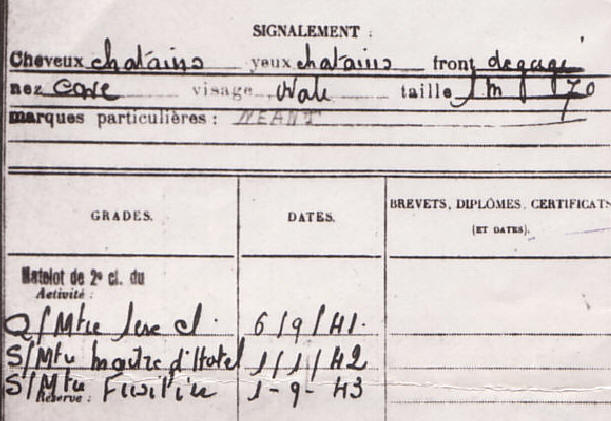 SIGNALEMENT :
Cheveux chatains yeux chatains front degagé
nez cave visage Ovale taille 1 m 70
marques particulières : NEANT
GRADES. DATES. BREVETS, DIPLÔMES, CERTIFICATS
(ET DATES).
Matelot de 2e cl. du
Activité :
Q/Mtre 1ere cl. 6/9/41.
S/Mtre Maitre d'Hotel 1/1/42
S/Mtre Fusilier 1-9-43
Réserve :